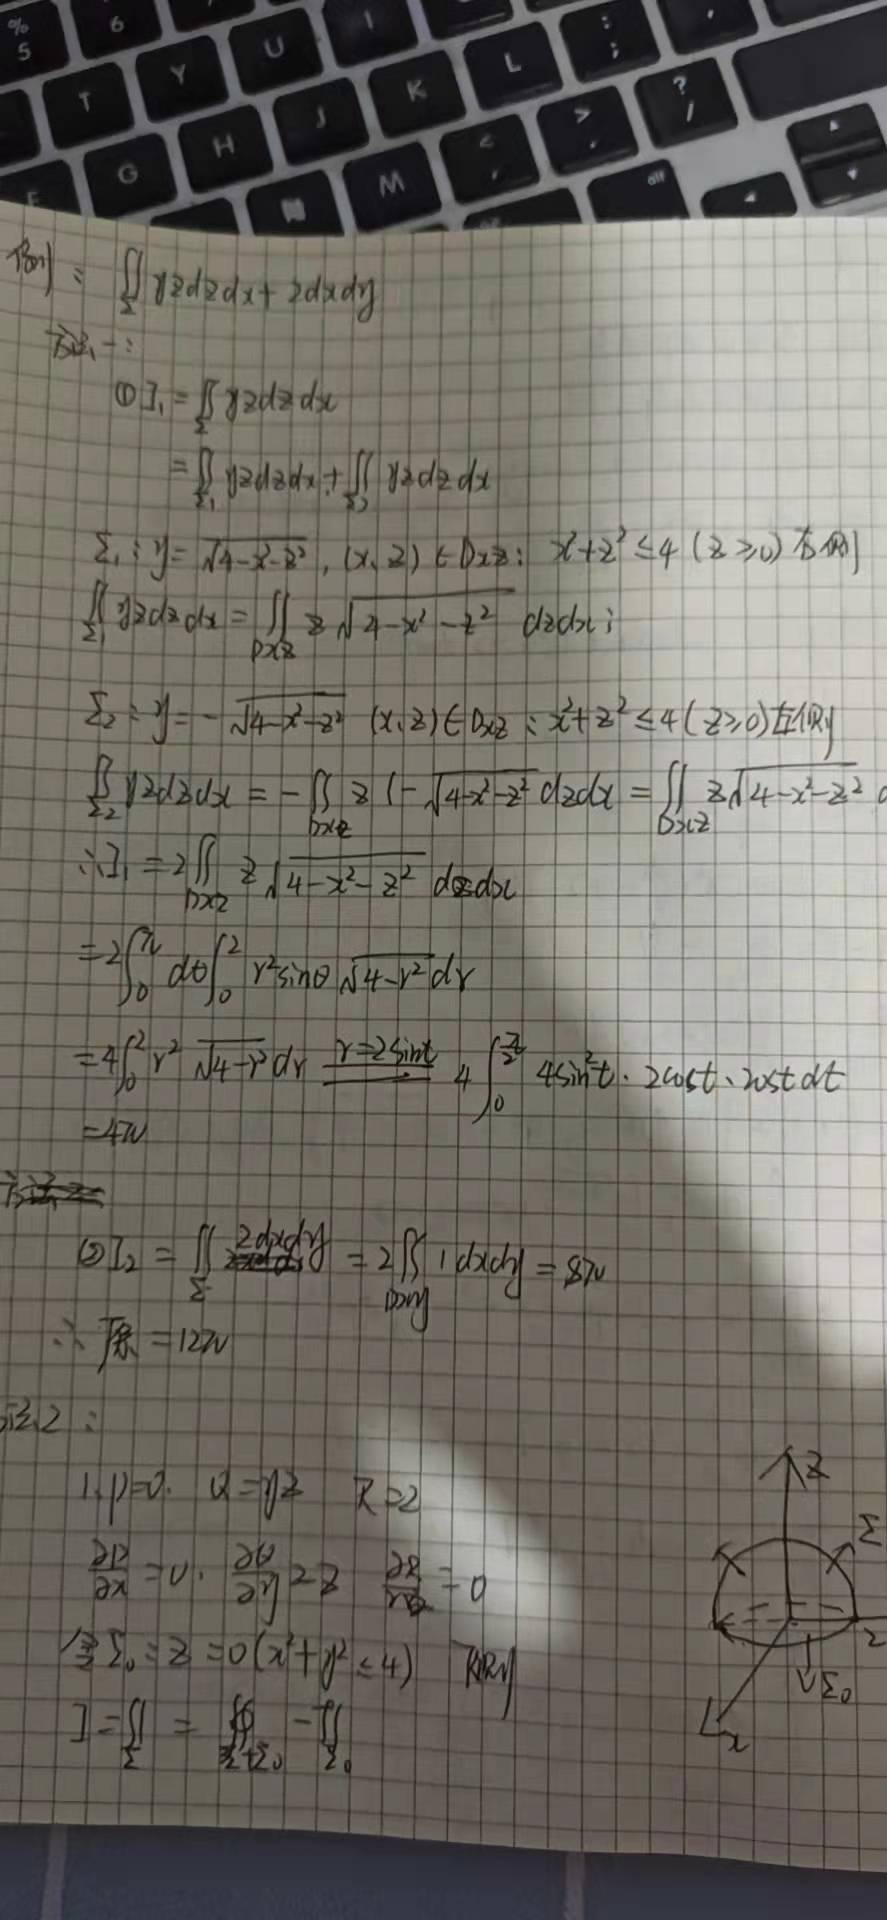 % 5
6
T Y U I
: ;
G H J K L
? /
M < , > .
alt
例: ∬_Σ yzdzdx + 2dxdy
方法一:
① I₁ = ∬_Σ yzdzdx
= ∬_Σ₁ yzdzdx + ∬_Σ₂ yzdzdx
Σ₁: y = √(4-x²-z²), (x,z) ∈ Dxz: x²+z² ≤ 4 (z≥0) 右侧
∬_Σ₁ yzdzdx = ∬_Dxz z√(4-x²-z²) dzdx;
Σ₂: y = -√(4-x²-z²) (x,z) ∈ Dxz: x²+z² ≤ 4 (z≥0) 左侧
∬_Σ₂ yzdzdx = -∬_Dxz z(-√(4-x²-z²) dzdx = ∬_Dxz z√(4-x²-z²) d
∴ I₁ = 2∬_Dxz z√(4-x²-z²) dzdx
= 2∫₀^π dθ∫₀² r²sinθ √(4-r²) dr
= 4∫₀² r² √(4-r²) dr r=2sint 4∫₀^(π/2) 4sin²t · 2cost · 2cost dt
= 4π
② I₂ = ∬_Σ 2dxdy = 2∬_Dxy 1 dxdy = 8π
∴ 原 = 12π
法2:
1. P=0. Q=yz R=2
∂P/∂x = 0. ∂Q/∂y = z ∂R/∂z = 0
令 Σ₀: z = 0 (x²+y² ≤ 4) 下侧
I = ∬_Σ = ∯_Σ+Σ₀ - ∬_Σ₀
z
Σ
2
Σ₀
x